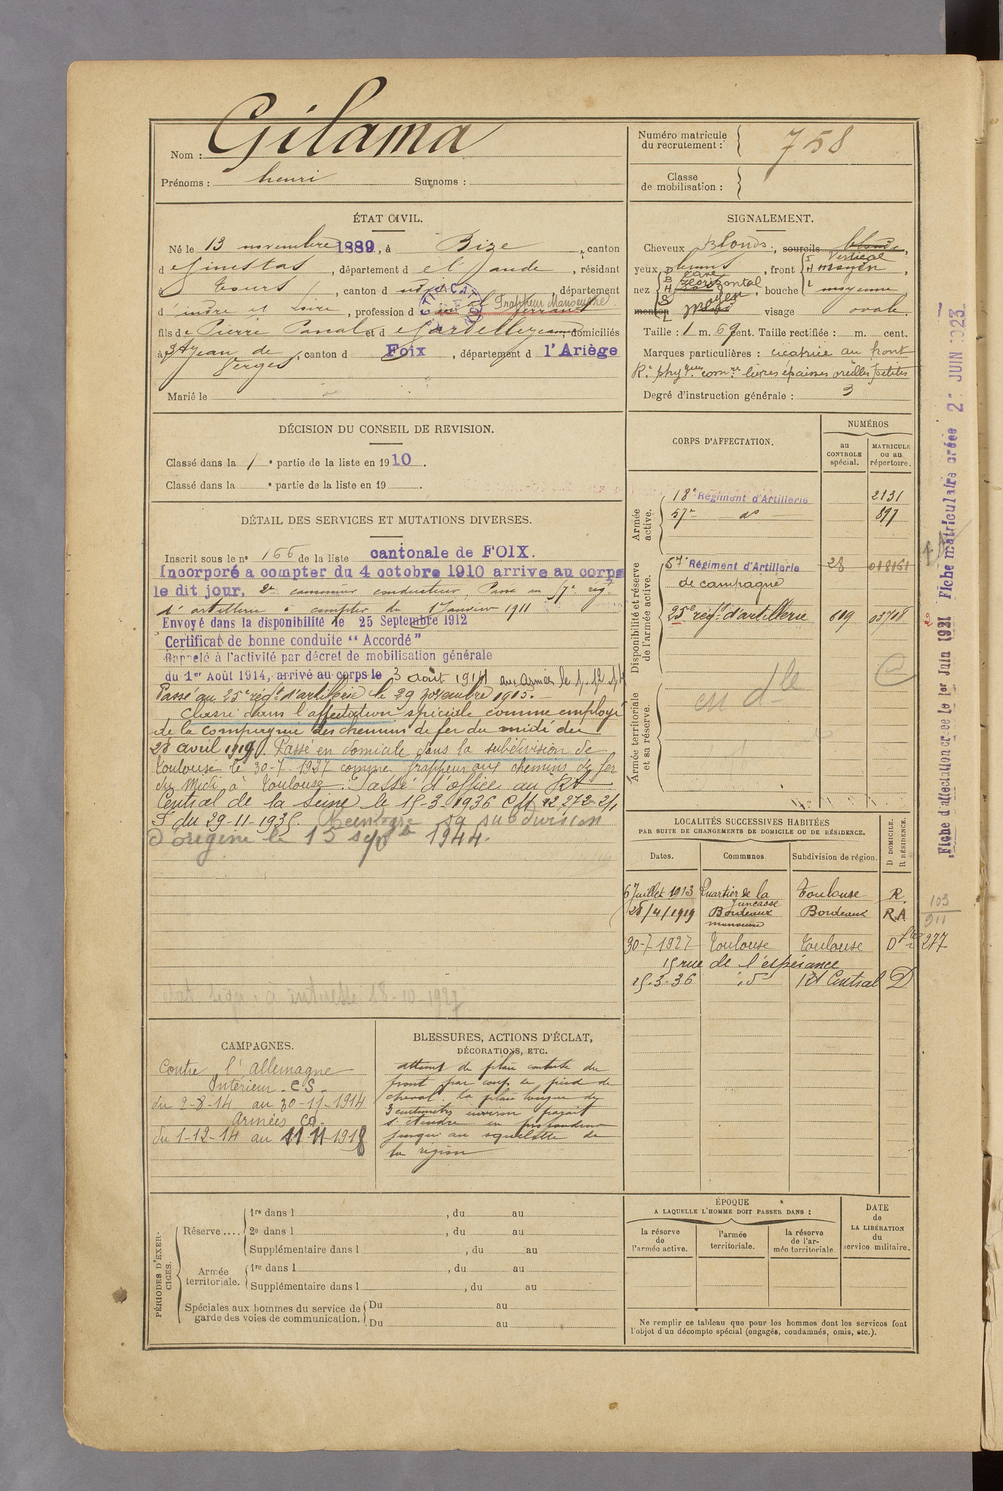 Nom : Gilama
Prénoms : henri Surnoms :
Numéro matricule du recrutement : 758
Classe de mobilisation :
ÉTAT CIVIL.
Né le 13 novembre 1889, à Bize, canton
d e Ginestas, département d el'aude, résidant
à Tours, canton d, département
d indre et Loire, profession d Frappeur Manoeuvre
fils de Pierre Pascal et d e domiciliés
à St jean de Verges, canton d Foix, département d l'Ariège
Marié le
SIGNALEMENT.
Cheveux Blonds, sourcils blonds,
yeux, front Vertical moyen,
nez cave Horizontal moyen, bouche moyenne
menton visage ovale.
Taille : 1 m. 69 cent. Taille rectifiée : m. cent.
Marques particulières : cicatrice au front
lèvres épaisses oreilles petites
Degré d'instruction générale : 3
DÉCISION DU CONSEIL DE REVISION.
Classé dans la 1e partie de la liste en 1910.
Classé dans la e partie de la liste en 19
DÉTAIL DES SERVICES ET MUTATIONS DIVERSES.
Inscrit sous le no 166 de la liste cantonale de FOIX.
Incorporé a compter du 4 octobre 1910 arrive au corps
le dit jour, 2e canonnier conducteur, Passé au 57e régt
d'artillerie à compter du 1 Janvier 1911
Envoyé dans la disponibilité le 25 Septembre 1912
Certificat de bonne conduite "Accordé"
Rappelé à l'activité par décret de mobilisation générale
du 1er Août 1914, arrivé au corps le 3 août 1914 aux armées le 1-12-14
Passé au 25e régt d'artillerie le 29 novembre 1915.
Classé dans l'affectation spéciale comme employé
de la compagnie des chemins de fer du midi du
28 avril 1919. Passé en domicile dans la subdivision de
Toulouse le 30-7-1927 comme frappeur aux chemins de fer
du Midi, à Toulouse. Passé d'office au Rt
Central de la Seine le 15-3-1936 C.M. 12.272-2/1
S du 29-11-1935. Réintègre sa subdivision
d'origine le 15 sept 1944.
18-10-1927
CORPS D'AFFECTATION.
NUMÉROS
au CONTROLE spécial.
MATRICULE ou au répertoire.
Armée active.
18e Régiment d'Artillerie 2131
57e do 897
Disponibilité et réserve de l'armée active.
57e Régiment d'Artillerie 28
de campagne
25e régt d'artillerie 609
Armée territoriale et sa réserve.
en dle
LOCALITÉS SUCCESSIVES HABITÉES
PAR SUITE DE CHANGEMENTS DE DOMICILE OU DE RÉSIDENCE.
Dates. Communes. Subdivision de région. D DOMICILE. R RÉSIDENCE.
6 Juillet 1913 Quartier de la Juncasse Toulouse R.
28/4/1919 Bordeaux Bordeaux RA
30-7-1927 Toulouse Toulouse D
15 rue de l'espérance
15-3-36 Rt Central D
103
911
277
Fiche d'affectation créée le 1er Juin 1921 Fiche matriculaire créée 2 JUIN 1923
CAMPAGNES.
Contre l'allemagne
Intérieur - CS -
du 2-8-14 au 30-11-1914
Armées CD.
du 1-12-14 au 11 11-1918
BLESSURES, ACTIONS D'ÉCLAT,
DÉCORATIONS, ETC.
atteint de plaie contuse du
front par coup de pied de
cheval. la plaie longue de
3 centimètres environ parait
s'étendre en profondeur
jusqu'au squelette de
la région
PÉRIODES D'EXERCICES.
Réserve .... 1re dans l, du au
2e dans l, du au
Supplémentaire dans l, du au
Armée territoriale. 1re dans l, du au
Supplémentaire dans l, du au
Spéciales aux hommes du service de garde des voies de communication. Du au
Du au
ÉPOQUE
A LAQUELLE L'HOMME DOIT PASSER DANS :
la réserve de l'armée active.
l'armée territoriale.
la réserve de l'armée territoriale
DATE de LA LIBÉRATION du service militaire.
Ne remplir ce tableau que pour les hommes dont les services font
l'objet d'un décompte spécial (engagés, condamnés, omis, etc.).